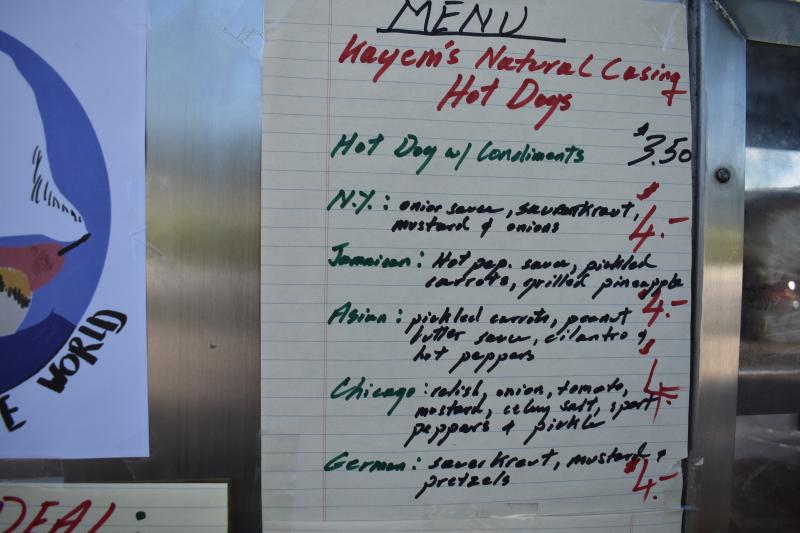 MENU
Kayem's Natural Casing
Hot Dogs
Hot Dog w/ Condiments $3.50
N.Y.: onion sauce, saurerkraut,
mustard & onions $4.-
Jamaican: Hot pep. sauce, pickled
carrots, grilled pineapple
$4.-
Asian: pickled carrots, peanut
butter sauce, cilantro &
hot peppers $4.-
Chicago: relish, onion, tomato,
mustard, celery salt, sport
peppers & pickle
German: sauerkraut, mustard &
pretzels $4.-
E WORLD
DEAL: